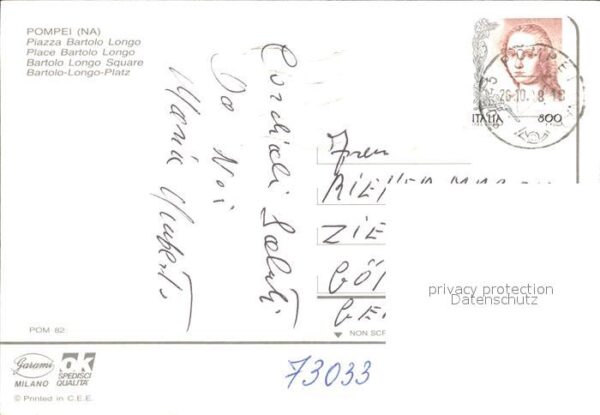 POMPEI (NA)
Piazza Bartolo Longo
Place Bartolo Longo
Bartolo Longo Square
Bartolo-Longo-Platz
Cordiali Saluti
Da Noi
Maria Umberto
POMPEI
26-10
8
18
ITALIA 800
ZIE
GÖ
privacy protection
Datenschutz
POM 82
NON SCR
Garami
MILANO
ok
SPEDISCI
QUALITÀ
© Printed in C.E.E.
73033